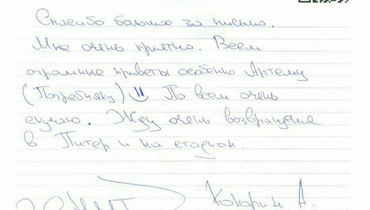 Спасибо большое за письмо.
Мне очень приятно. Всем
огромные приветы особенно Артему
(Погребняку) По всем очень
скучаю. Жду очень возвращения
в Питер и на стадион.
Кокорин А.